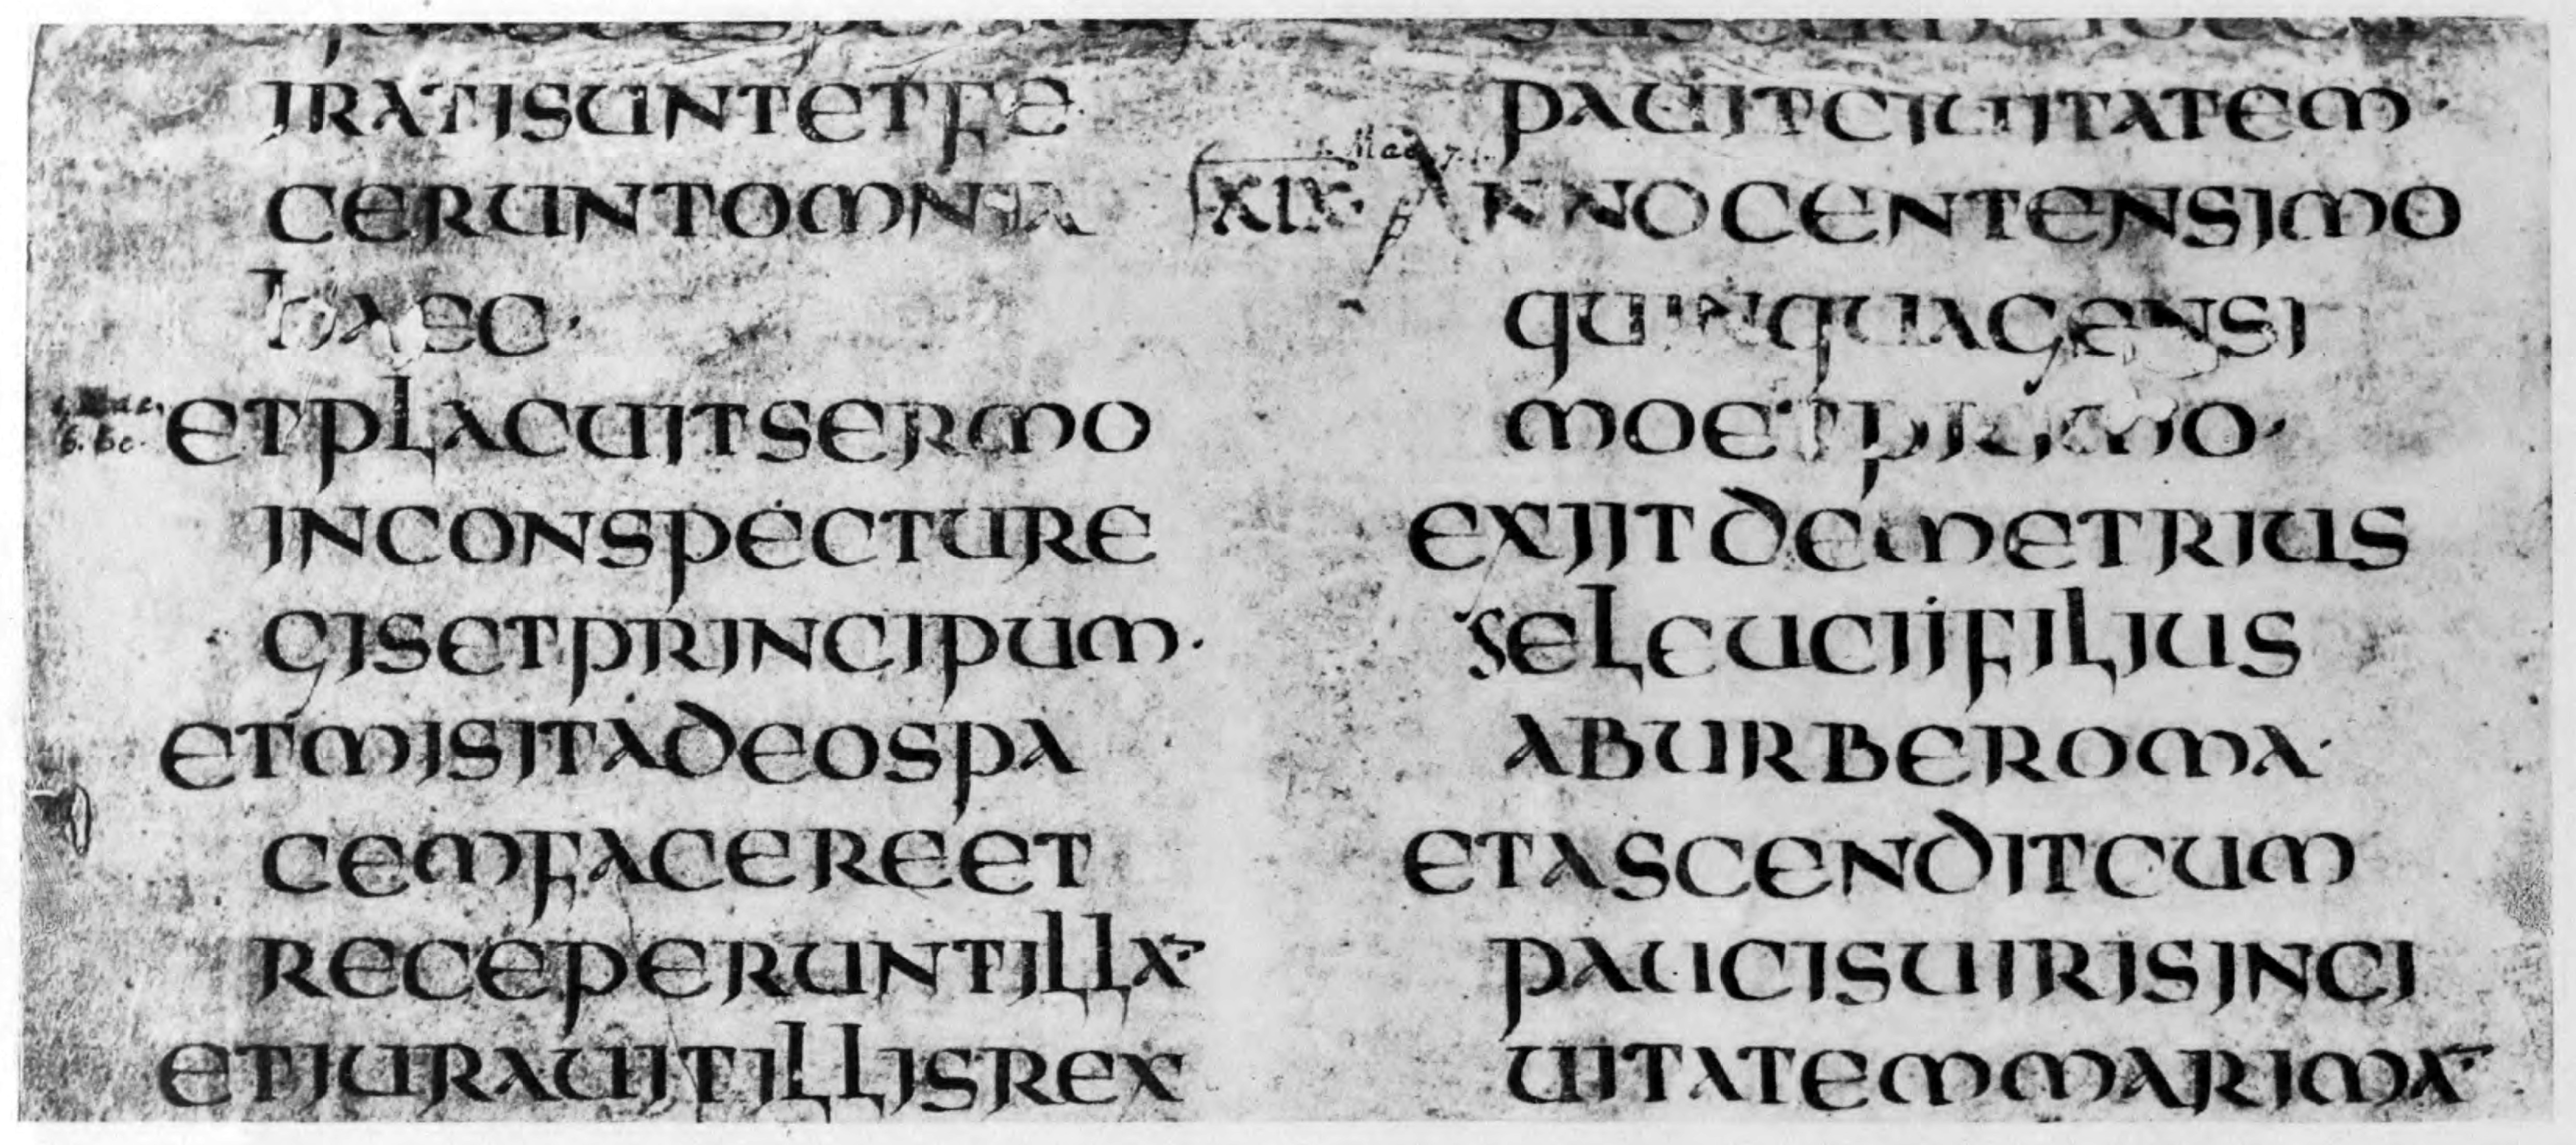 IRATISUNTETFE
CERUNTOMNIA
hAEC·
ETPLACUITSERMO
INCONSPECTURE
GISETPRINCIPUM·
ETMISITADEOSPA
CEMFACEREET
RECEPERUNTILLA̅·
ETIURAUITILLISREX
PAUITCIUITATEM·
XIX· 1. Mac. 7.1.
ANNOCENTENSIMO
QUINQUAGENSI
MOETPRIMO·
EXIITDEMETRIUS
SELEUCIIFILIUS
ABURBEROMA·
ETASCENDITCUM
PAUCISUIRISINCI
UITATEMMARIMA̅·